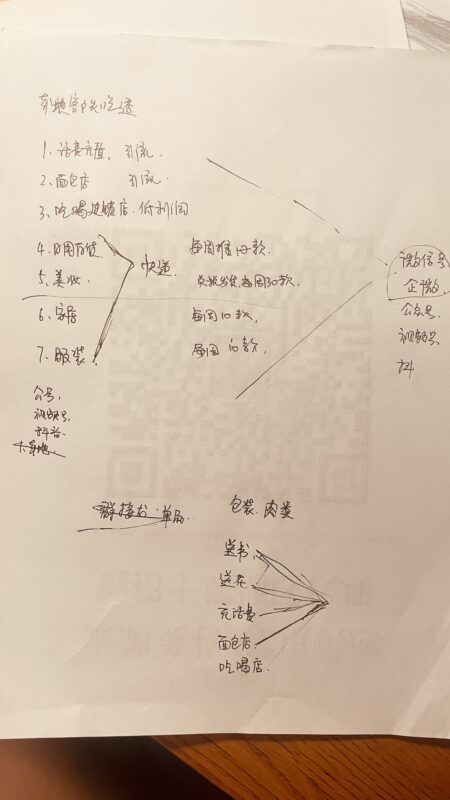 1. 话费充值、引流.
2. 面包店 引流.
3. 吃喝连锁店.低利润
4. 日用百货 每周推10款.
快递.
5. 美妆. 每周30款.
6. 家居 每周10款,
7. 服装. 每周10款,
微信号
企微
公众号
视频号
抖
公号,
视频号.
抖音.
群接龙.单品.
包装.肉类
送书.
送花
充话费
面包店.
吃喝店.